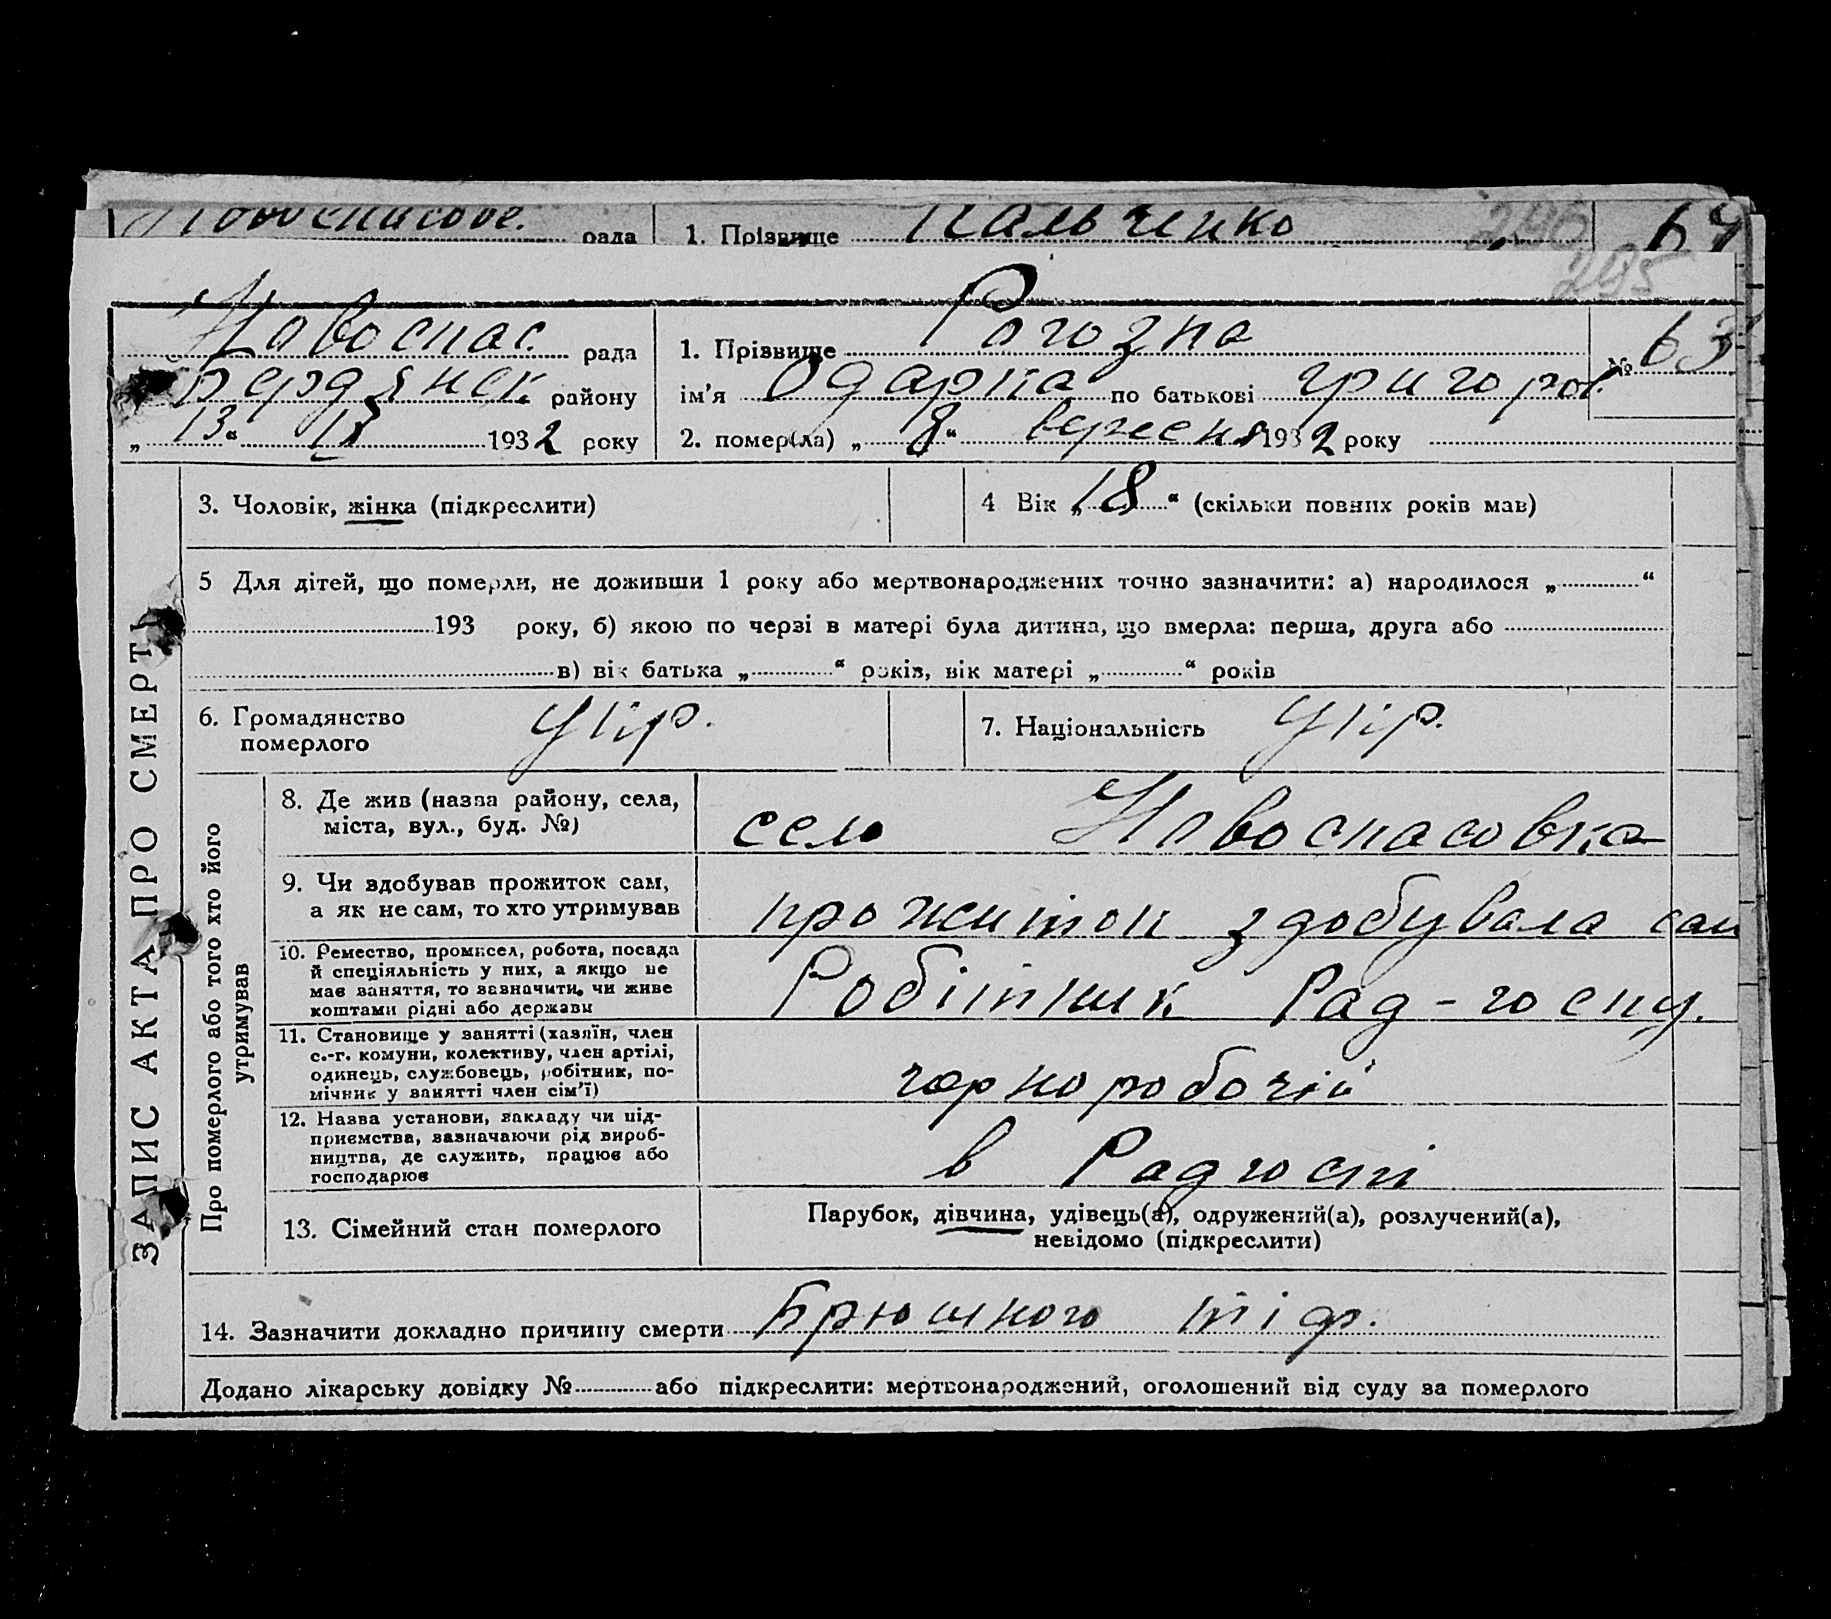 Новоспасове. рада 1. Прізвище Пальченко 296 64
295
Новоспас. рада 1. Прізвище Рогозна № 63
Бердянськ району ім'я Одарка по батькові григоров.
„13“ ІХ 1932 року 2. помер(ла) „8“ вересня 1932 року
3. Чоловік, жінка (підкреслити) 4 Вік „18“ (скільки повних років мав)
5 Для дітей, що померли, не доживши 1 року або мертвонароджених точно зазначити: а) народилося „ “
193 року, б) якою по черзі в матері була дитина, що вмерла: перша, друга або
в) вік батька „ “ років, вік матері „ “ років
6. Громадянство померлого Укр. 7. Національність Укр.
ЗАПИС АКТА ПРО СМЕРТЬ
Про померлого або того хто його утримував
8. Де жив (назва району, села,
міста, вул., буд. №) село Новоспасовка
9. Чи здобував прожиток сам,
а як не сам, то хто утримував прожиток здобувала сам
10. Ремество, промисел, робота, посада
й спеціяльність у них, а якщо не
має заняття, то зазначити, чи живе
коштами рідні або держави Робітник Рад-госпу.
11. Становище у занятті (хазяїн, член
с.-г. комуни, колективу, член артілі,
одинець, службовець, робітник, по-
мічник у занятті член сім'ї) чорноробочій
12. Назва установи, закладу чи під-
приємства, зазначаючи рід вироб-
ництва, де служить, працює або
господарює в Радгоспі
13. Сімейний стан померлого Парубок, дівчина, удівець(а), одружений(а), розлучений(а),
невідомо (підкреслити)
14. Зазначити докладно причину смерти Брюшного тіф.
Додано лікарську довідку № або підкреслити: мертвонароджений, оголошений від суду за померлого